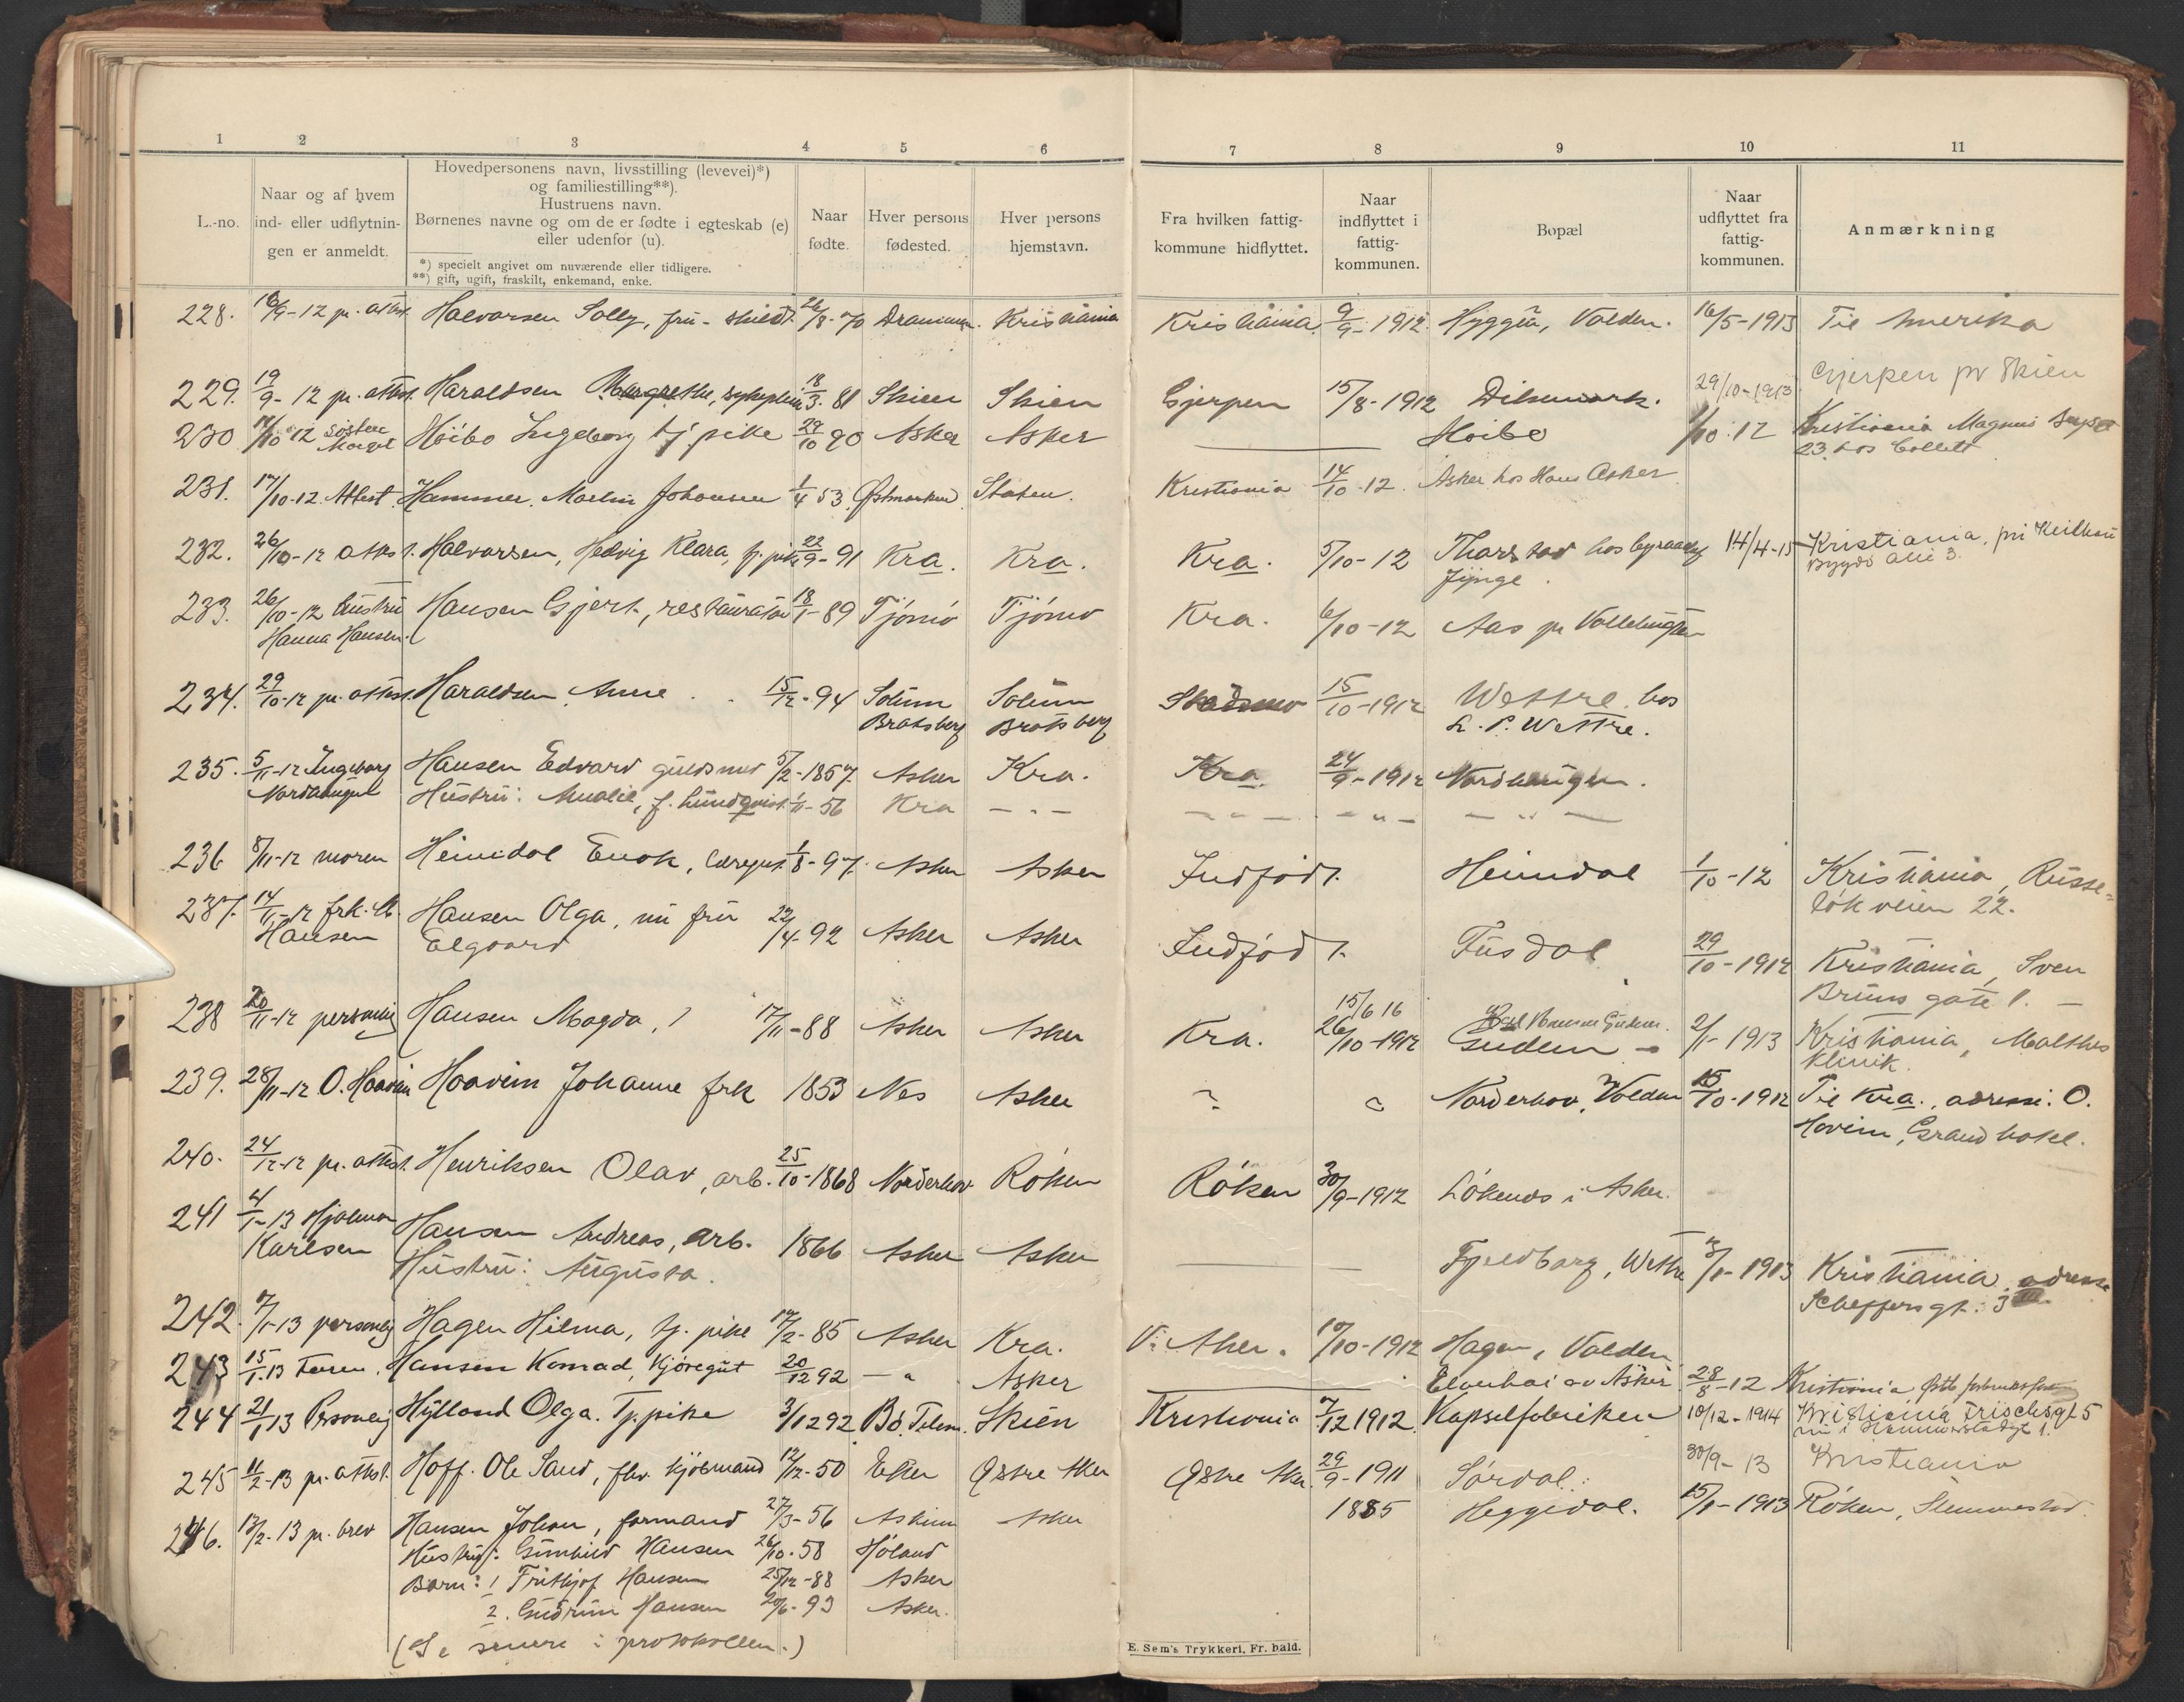 1 2 3 4 5 6 7 8 9 10 11
L.-no.
Naar og af hvem
ind- eller udflytnin-
gen er anmeldt.
Hovedpersonens navn, livsstilling (levevei)*)
og familiestilling**).
Hustruens navn.
Børnenes navne og om de er fødte i egteskab (e)
eller udenfor (u).
*) specielt angivet om nuværende eller tidligere.
**) gift, ugift, fraskilt, enkemand, enke.
Naar
fødte.
Hver persons
fødested.
Hver persons
hjemstavn.
Fra hvilken fattig-
kommune hidflyttet.
Naar
indflyttet i
fattig-
kommunen.
Bopæl
Naar
udflyttet fra
fattig-
kommunen.
Anmærkning
228. 18/9-12 pr. attest. Halvorsen Solly, fru - skildt. 26/8-70 Drammen. Kristiania Kristiania 9/9-1912 Hyggen, Valden. 16/5-1913 Til Amerika
229. 19/9-12 pr. attest. Haraldsen Margrethe, sykepleier 18/3-81 Skien Skien Gjerpen 15/8-1912 Dikemark. 29/10-1913 Gjerpen pr Skien
230 10/10 12 Søsteren Margit Höibo Ingeborg tj pike 29/10 90 Asker Asker — Höibo 1/10-12 Kristiania Magnus Bergs gt
23 hos Collett
231. 17/10-12. Attest. Hammer. Martin Johansen 1/4 53 Østmarken Staten. Kristiania 14/10-12. Asker hos Hans Asker
232. 26/10-12 attest. Halvorsen, Hedvig Klara, tj. pike 22/9-91 Kra. Kra. Kra. 5/10-12 Tharstad hos byraadsj 14/4-15 Kristiania, fru Keilhau
Jynge. Bygdø alle 3.
233. 26/10-12 hustru Hansen Gjert, restauratør 18/1-89 Tjömö Tjömö Kra. 6/10-12 Aas pr Vollebugten
Hanna Hansen.
234. 29/10-12 pr. attest. Haraldsen Anne 15/12-94 Solum Solum Skedsmo 15/10-1912 Wettre hos
Bratsberg Bratsberg L. P. Wettre.
235. 5/11-12 Ingeborg Hansen Edvard guldsmed 5/2-1857. Asker Kra. Kra. 24/9-1912 Nordhaugen.
Nordhaugen Hustru: Amalie, f. Lundqvist 1/11-56 Kra — " —
236 8/11-12 moren Heimdal Enok, læregut. 1/8-97. Asker Asker Indfødt. Heimdal 1/10-12 Kristiania, Russe-
lökveien 22.
237. 14/11-12 frk. M. Hansen Olga, nu fru 22/4-92 Asker Asker Indfødt. Fusdal 29/10-1912 Kristiania, Sven
Hansen Elgaard Bruns gate 1. —
238 20/11-12 personlig Hansen Magda, 17/11-88 Asker Asker Kra. 15/6 16
26/10-1912 Gudem 2/1-1913 Kristiania, Malthes
klinik.
239. 28/11-12 O. Haavim Haavim Johanne frk 1853 Nes Asker " " Norderhov, Valden 15/10-1912 Til Kra., adresse: O.
Hovim, Grand hotel.
240. 24/12-12 pr. attest. Henriksen Olav, arb. 25/10-1868 Norderhov Röken Röken 30/9-1912 Lökenes i Asker.
241 4/1-13 Hjalmar Hansen Andreas, arb. 1866 Asker Asker — Fjeldborg, Wettre 3/1-1913 Kristiania, adresse
Karlsen Hustru: Augusta. Scheffersgt. 3 III
242. 7/1-13 personlig Hagen Hilma, tj. pike 17/2-85 Asker Kra. V. Aker. 10/10-1912 Hagen, Valden
243 15/1.13 Faren. Hansen Konrad, kjøregut 20/12 92 — " Asker — Elverhøi av Asker 28/8-12 Kristiania
244 21/1 13 Personlig Hylland Olga. Tj. pike 3/12 92 Bö. Telem. Skien Kristiania 7/12 1912. Kapselfabriken 10/12-1914 Kristiania Frischsgt 5
245 11/2-13 pr. attest. Hoff. Ole Sand, fhv. kjøbmand 12/12-50 Østre Aker Østre Aker 29/9-1911 Sørdal. 30/9-13 Kristiania
246. 13/2-13 pr. brev Hansen Johan, formand 27/3-56 Askim Asker 1885 Heggedal. 15/1-1913 Röken, Slemmestad
Hustru: Gunhild Hansen 26/10-58 Høland
Barn: 1 Frithjof Hansen 25/12-88 Asker
2. Gudrun Hansen 20/6-93 Asker.
(Se senere i protokollen.)
E. Sem's Trykkeri. Fr. hald.